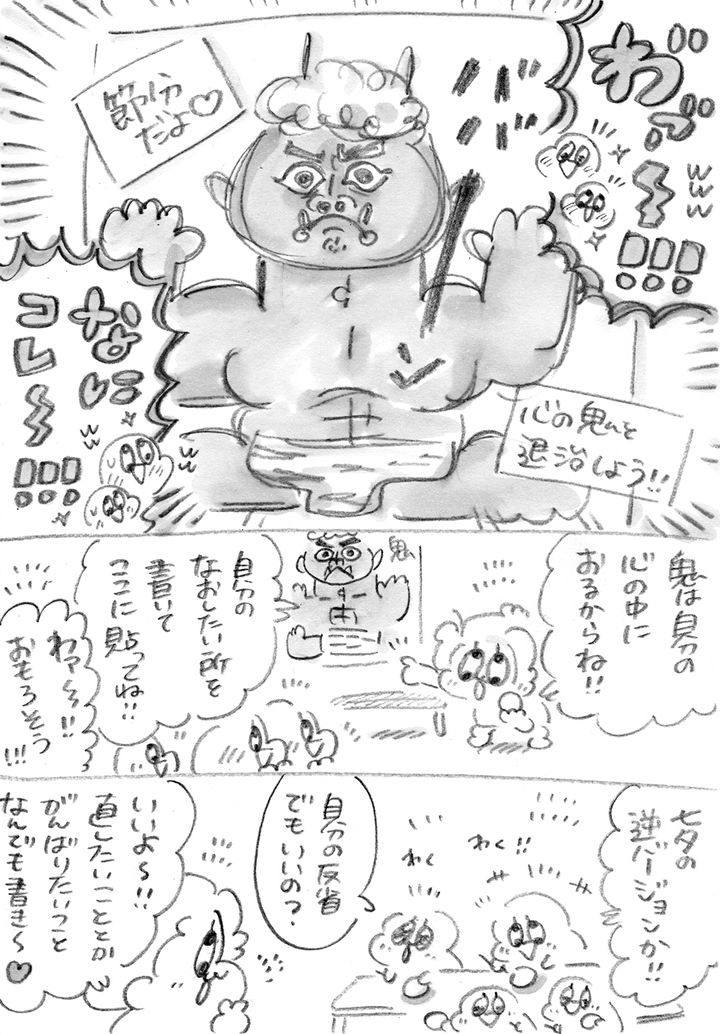 わぁ〜〜www!!!
ババ
バン
節分
だよ♡
なに
コレ〜〜!!!
ww
心の鬼を
退治しよう!!
鬼は自分の
心の中に
おるからね!!
鬼
自分の
なおしたい所を
書いて
ここに貼ってね!!
わァ〜!!
おもろそう
!!!
七夕の
逆バージョンか!!
わく!!
わく
自分の反省
でもいいの?
いいよ〜!!
直したいこととか
がんばりたいこと
なんでも書き〜♡